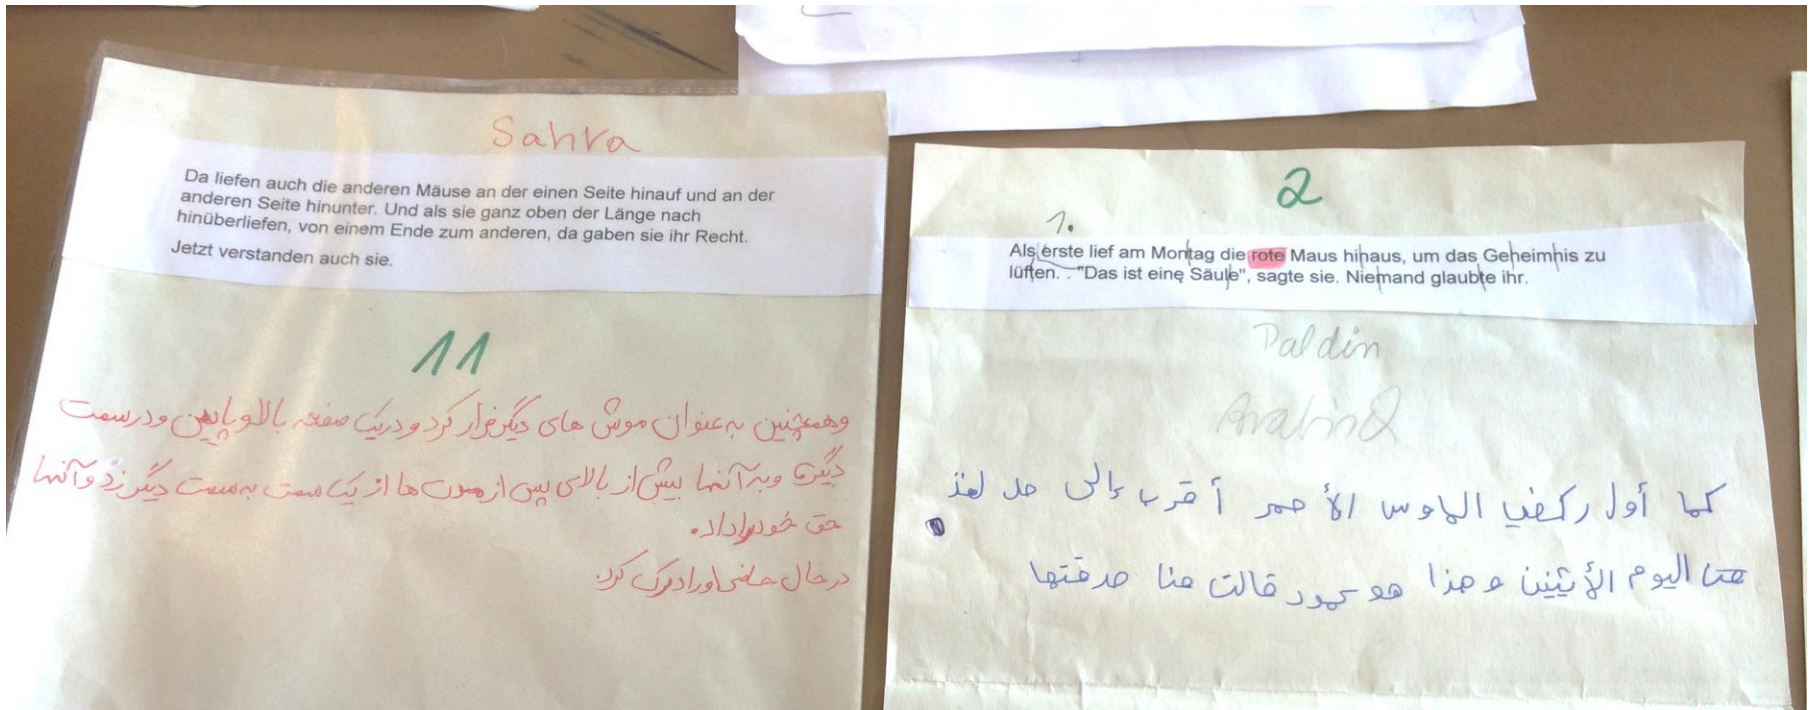 Sahra
Da liefen auch die anderen Mäuse an der einen Seite hinauf und an der
anderen Seite hinunter. Und als sie ganz oben der Länge nach
hinüberliefen, von einem Ende zum anderen, da gaben sie ihr Recht.
Jetzt verstanden auch sie.
11
وهمچنین به عنوان موش های دیگر فرار کرد و در یک صفحه بالا و پایین و در سمت
دیگری و به آنها بیش از بالای پس از ها از یک سمت به سمت دیگر زد و آنها
حق خود را داد.
در حال حاضر او را درک کرد.
2
1.
Als erste lief am Montag die rote Maus hinaus, um das Geheimnis zu
lüften. . "Das ist eine Säule", sagte sie. Niemand glaubte ihr.
Paldin
كما أول ركض الماوس الأحمر أقرب إلى حل لغز
اليوم الأثنين وهذا هو عمود قالت